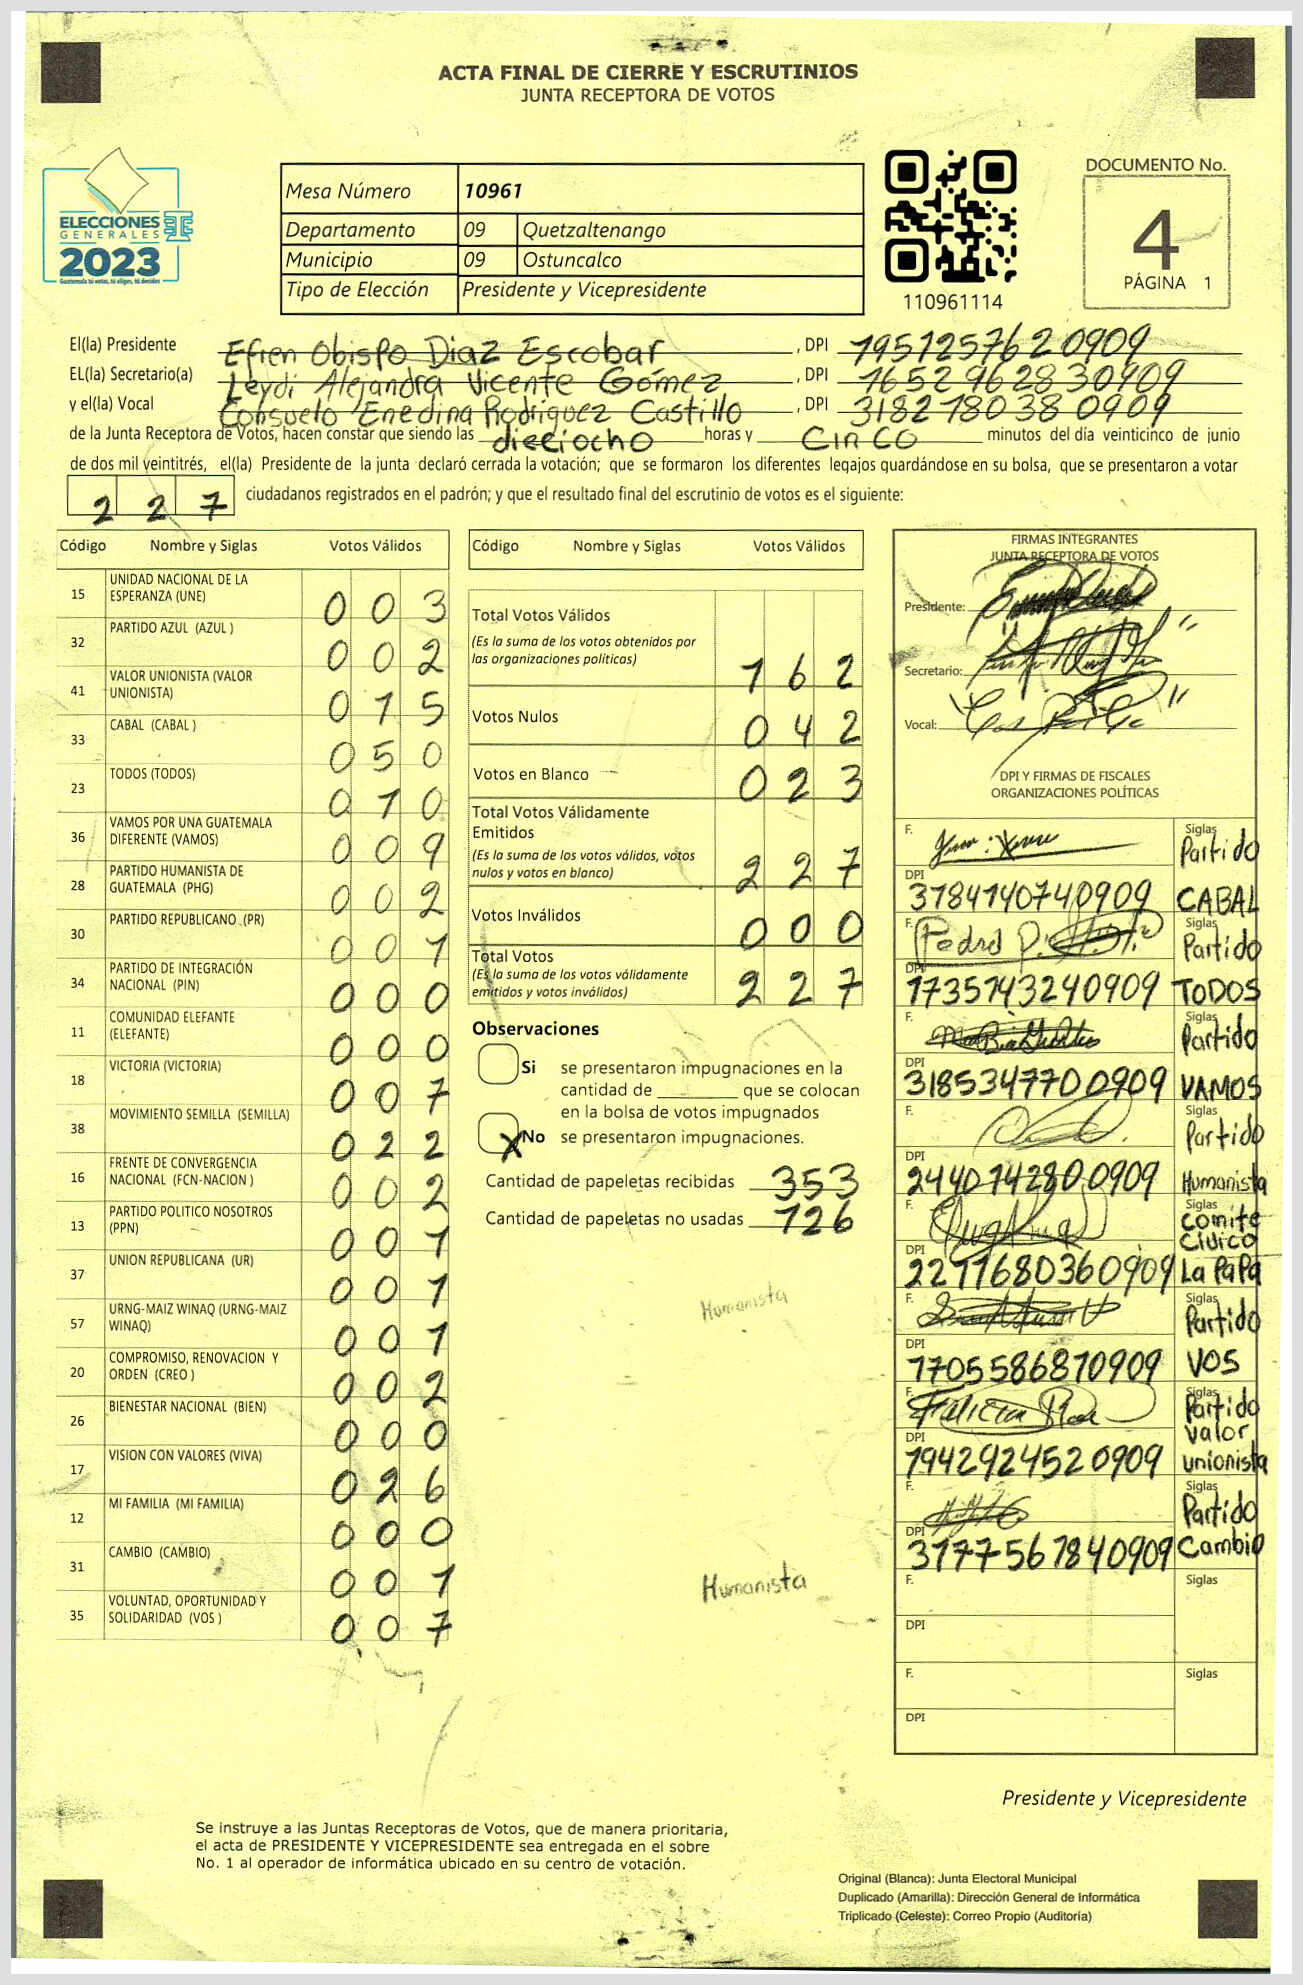 ACTA FINAL DE CIERRE Y ESCRUTINIOS
JUNTA RECEPTORA DE VOTOS
ELECCIONES
GENERALES
2023
Guatemala tú votas, tú eliges, tú decides
Mesa Número 10961
Departamento 09 Quetzaltenango
Municipio 09 Ostuncalco
Tipo de Elección Presidente y Vicepresidente
110961114
DOCUMENTO No.
4
PÁGINA 1
El(la) Presidente Efren Obispo Diaz Escobar, DPI 1951257620909
EL(la) Secretario(a) Leydi Alejandra Vicente Gómez, DPI 1652962830909
y el(la) Vocal Consuelo Enedina Rodriguez Castillo, DPI 3182780380909
de la Junta Receptora de Votos, hacen constar que siendo las dieciocho horas y cinco minutos del día veinticinco de junio
de dos mil veintitrés, el(la) Presidente de la junta declaró cerrada la votación; que se formaron los diferentes legajos guardándose en su bolsa, que se presentaron a votar
2 2 7 ciudadanos registrados en el padrón; y que el resultado final del escrutinio de votos es el siguiente:
Código Nombre y Siglas Votos Válidos
15 UNIDAD NACIONAL DE LA ESPERANZA (UNE) 0 0 3
32 PARTIDO AZUL (AZUL ) 0 0 2
41 VALOR UNIONISTA (VALOR UNIONISTA) 0 1 5
33 CABAL (CABAL ) 0 5 0
23 TODOS (TODOS) 0 1 0
36 VAMOS POR UNA GUATEMALA DIFERENTE (VAMOS) 0 0 9
28 PARTIDO HUMANISTA DE GUATEMALA (PHG) 0 0 2
30 PARTIDO REPUBLICANO (PR) 0 0 1
34 PARTIDO DE INTEGRACIÓN NACIONAL (PIN) 0 0 0
11 COMUNIDAD ELEFANTE (ELEFANTE) 0 0 0
18 VICTORIA (VICTORIA) 0 0 7
38 MOVIMIENTO SEMILLA (SEMILLA) 0 2 2
16 FRENTE DE CONVERGENCIA NACIONAL (FCN-NACION ) 0 0 2
13 PARTIDO POLITICO NOSOTROS (PPN) 0 0 1
37 UNION REPUBLICANA (UR) 0 0 1
57 URNG-MAIZ WINAQ (URNG-MAIZ WINAQ) 0 0 1
20 COMPROMISO, RENOVACION Y ORDEN (CREO ) 0 0 2
26 BIENESTAR NACIONAL (BIEN) 0 0 0
17 VISION CON VALORES (VIVA) 0 2 6
12 MI FAMILIA (MI FAMILIA) 0 0 0
31 CAMBIO (CAMBIO) 0 0 1
35 VOLUNTAD, OPORTUNIDAD Y SOLIDARIDAD (VOS ) 0 0 7
Código Nombre y Siglas Votos Válidos
Total Votos Válidos
(Es la suma de los votos obtenidos por
las organizaciones políticas) 1 6 2
Votos Nulos 0 4 2
Votos en Blanco 0 2 3
Total Votos Válidamente
Emitidos
(Es la suma de los votos válidos, votos
nulos y votos en blanco) 2 2 7
Votos Inválidos 0 0 0
Total Votos
(Es la suma de los votos válidamente
emitidos y votos inválidos) 2 2 7
Observaciones
Si se presentaron impugnaciones en la
cantidad de ________ que se colocan
en la bolsa de votos impugnados
X No se presentaron impugnaciones.
Cantidad de papeletas recibidas 353
Cantidad de papeletas no usadas 126
Humanista
Humanista
FIRMAS INTEGRANTES
JUNTA RECEPTORA DE VOTOS
Presidente:
Secretario:
Vocal:
DPI Y FIRMAS DE FISCALES
ORGANIZACIONES POLÍTICAS
F. Siglas Partido
DPI 3184140740909 CABAL
F. Pedro Siglas Partido
DPI 1735743240909 TODOS
F. Siglas Partido
DPI 3185347700909 VAMOS
F. Siglas Partido
DPI 2440742800909 Humanista
F. Siglas Comité Civico
DPI 2211680360909 La PaPa
F. Siglas Partido
DPI 1705586870909 VOS
F. Siglas Partido valor
DPI 1942924520909 unionista
F. Siglas Partido
DPI 3177567840909 Cambio
F. Siglas
DPI
F. Siglas
DPI
Presidente y Vicepresidente
Se instruye a las Juntas Receptoras de Votos, que de manera prioritaria,
el acta de PRESIDENTE Y VICEPRESIDENTE sea entregada en el sobre
No. 1 al operador de informática ubicado en su centro de votación.
Original (Blanca): Junta Electoral Municipal
Duplicado (Amarilla): Dirección General de Informática
Triplicado (Celeste): Correo Propio (Auditoría)